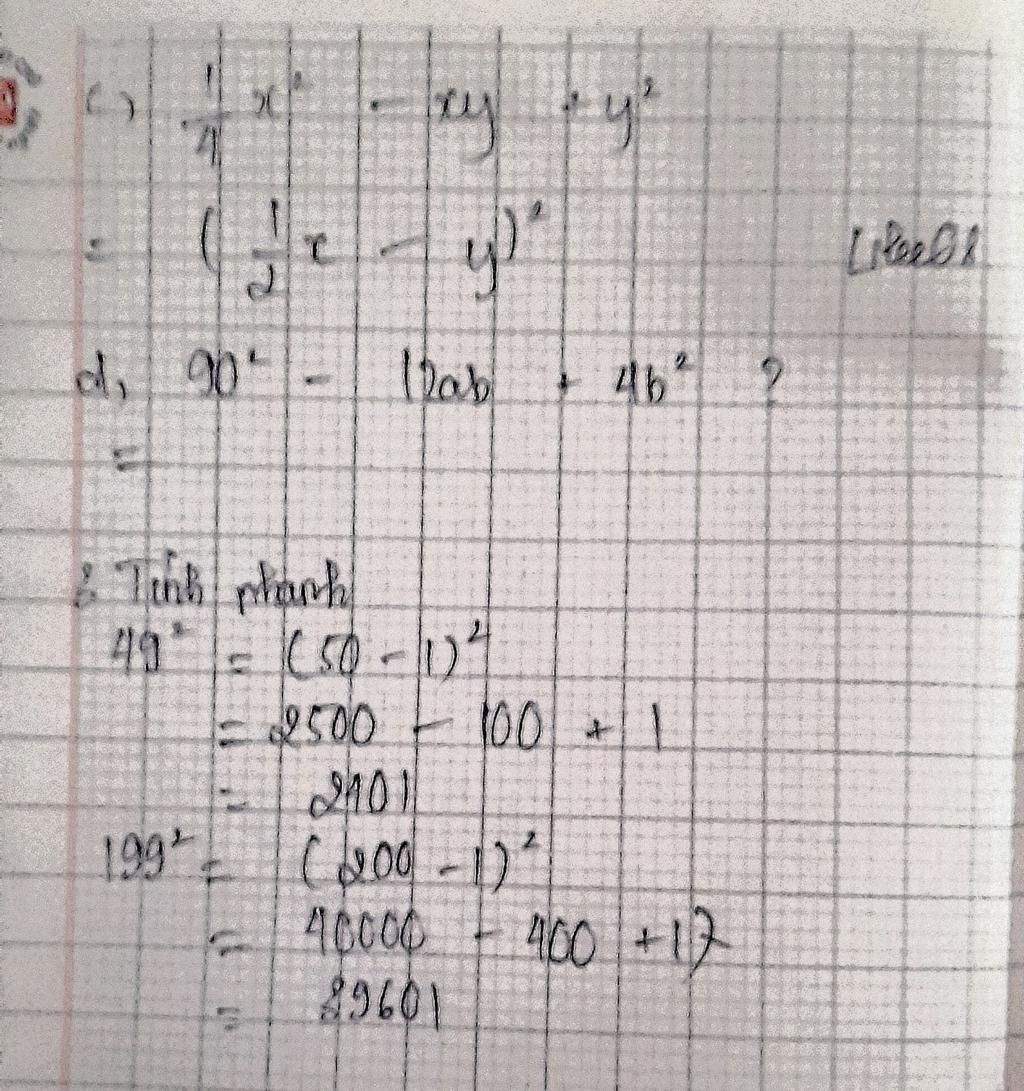 c) 1/4 x² - xy + y²
= (1/2 x - y)²
d, 90² - 12ab + 4b² ?
=
Tính nhanh
49² = (50 - 1)²
= 2500 - 100 + 1
= 2401
199² = (200 - 1)²
= 40000 - 400 + 1
= 39601